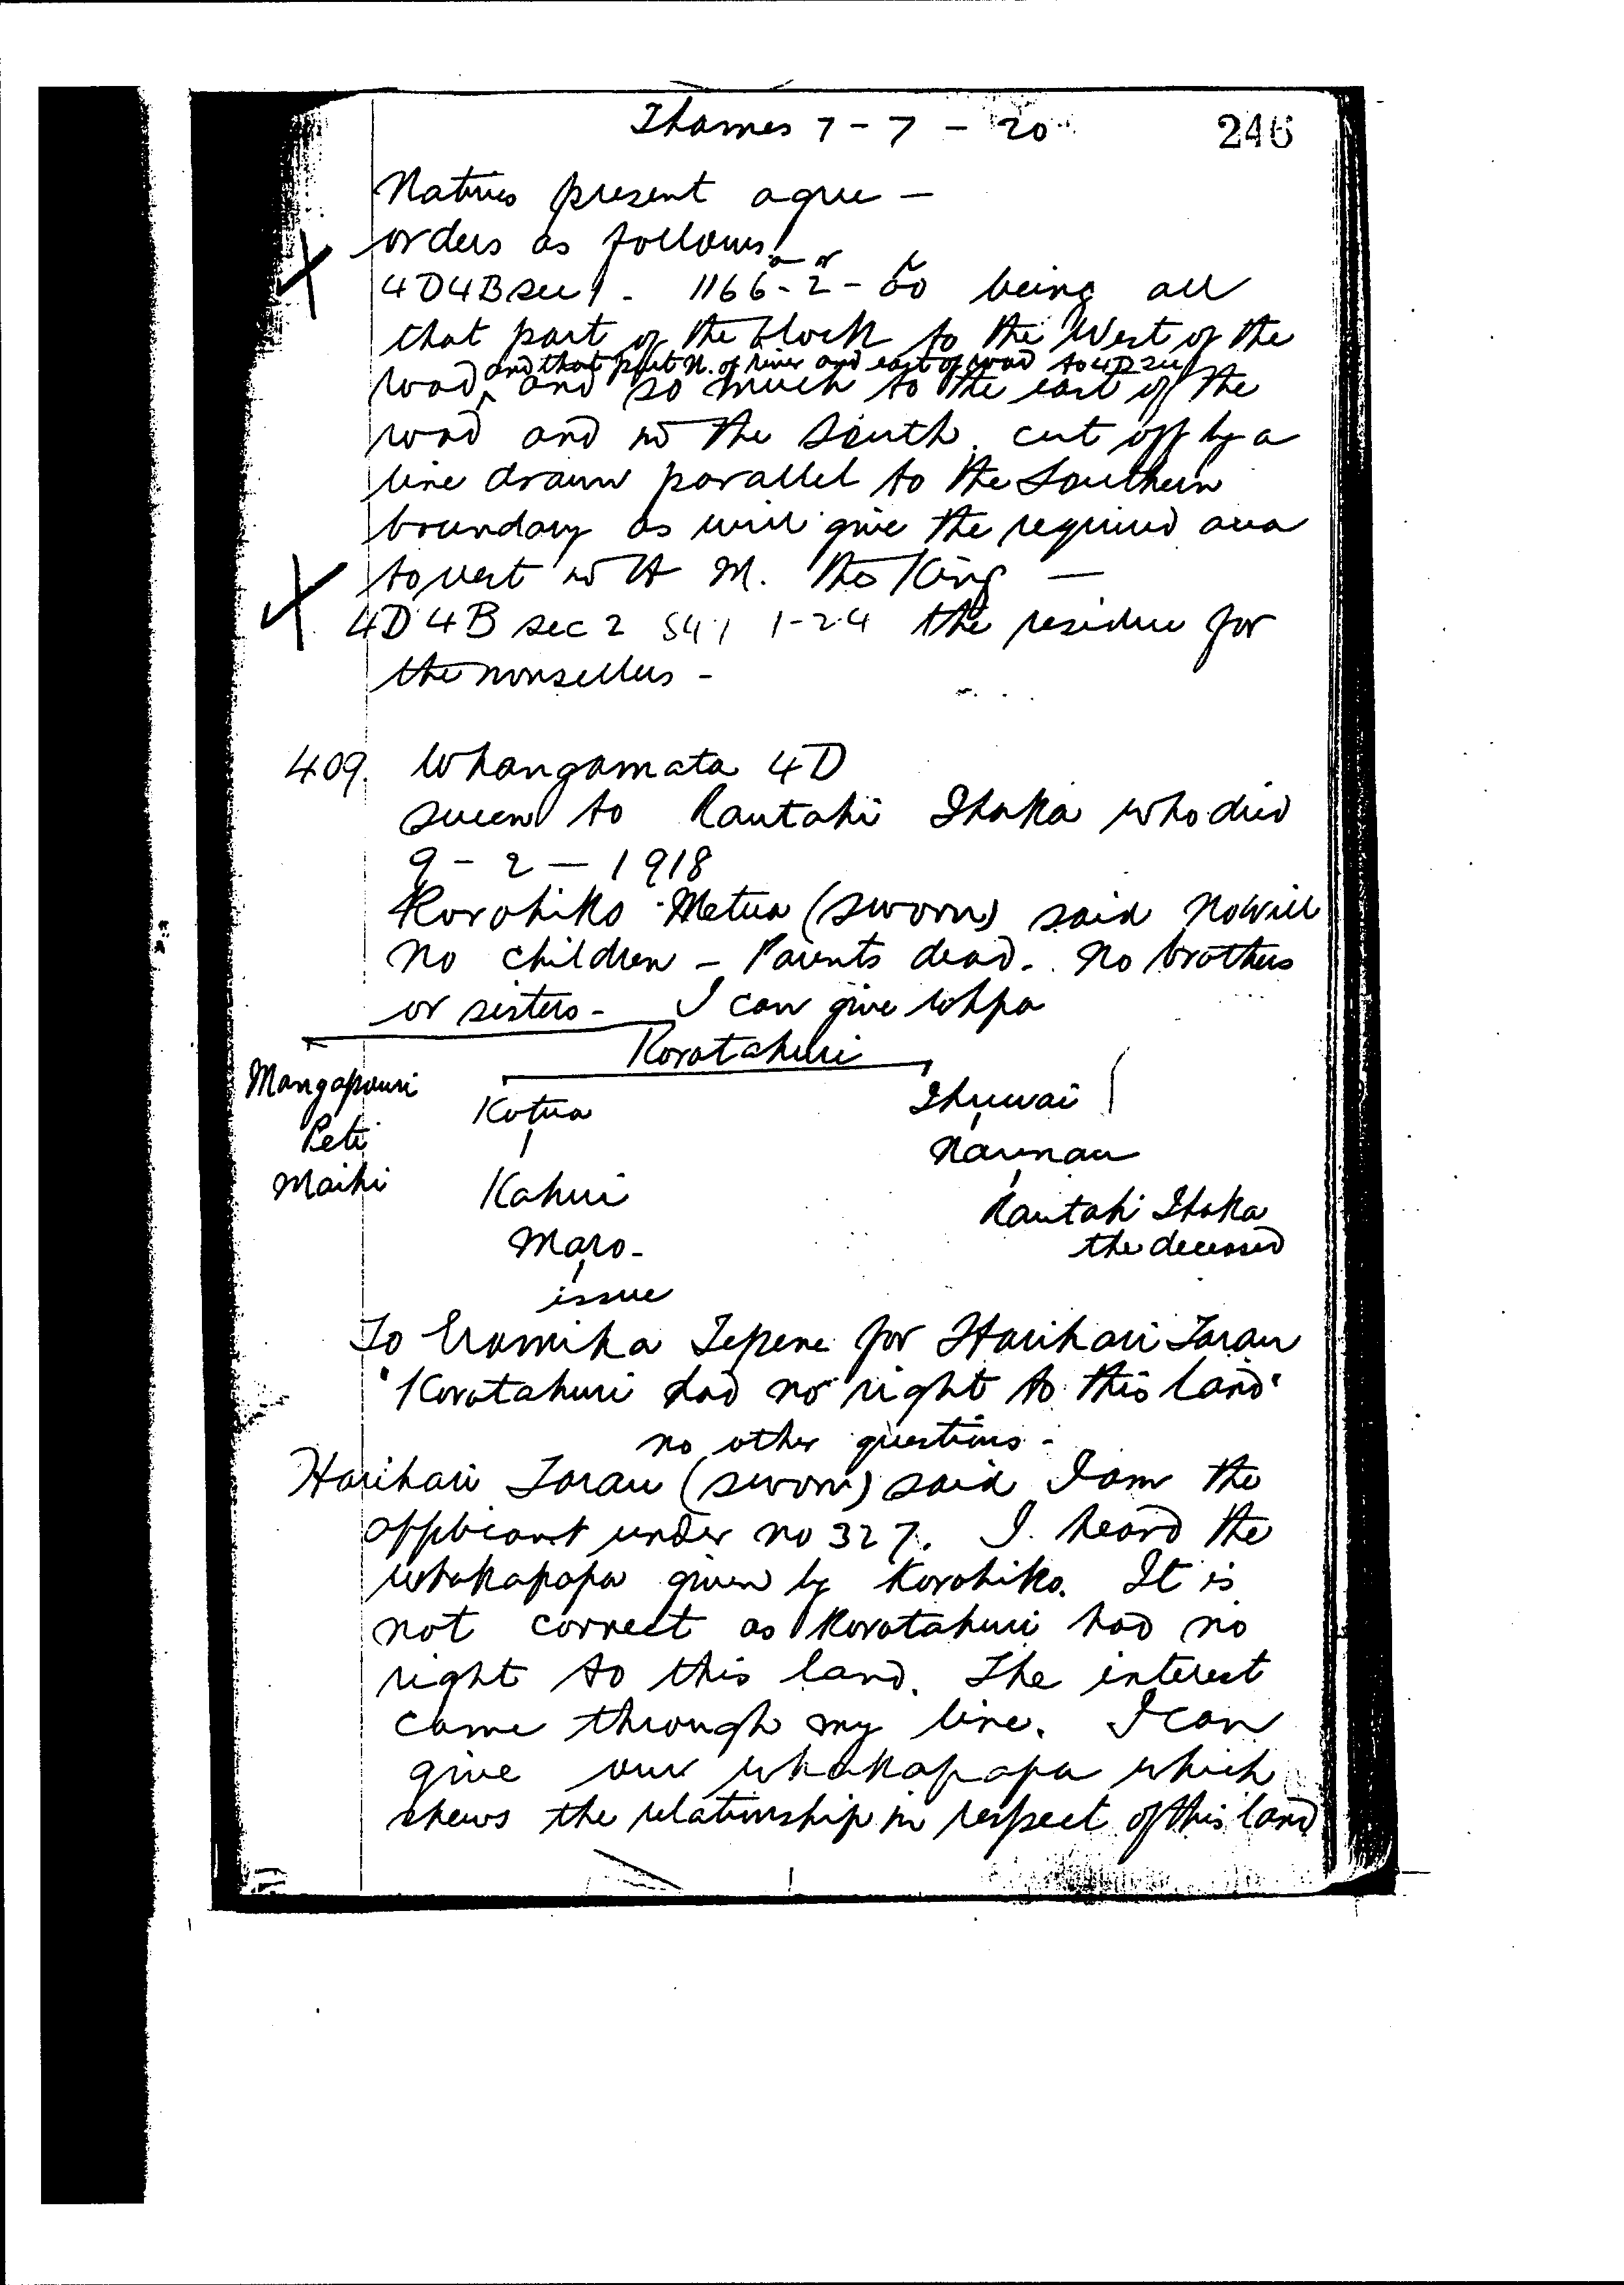 Thames 7 - 7 - 20
246
Natives present agree -
orders as follows.
a r p
4D4B sec 1 - 1166 - 2 - 00 being all
that part of the block to the West of the
and that part N. of river and east of road to 4D sec 1
road, and so much to the east of the
road and in the South, cut off by a
line drawn parallel to the Southern
boundary as will give the required area
to vest in H M. the King -
4D 4B sec 2 541 1-24 the residue for
the nonsellers -
409. Whangamata 4D
succn to Rautahi Ihaka who died
9 - 2 - 1918
Korohiko Metua (sworn) said No will
No children - Parents dead - No brothers
or sisters - I can give whpa
Korotahuri
Mangapouri
Kotua
Ihuwai
Peti
Naunau
Maihi
Kahui
Rautahi Ihaka
Maro -
the deceased
issue
To Eramiha Tepene for Harihari Tarau
"Korotahuri had no right to this land"
no other questions -
Harihari Tarau (sworn) said I am the
applicant under no 327. I heard the
whakapapa given by Korohiko. It is
not correct as Korotahuri had no
right to this land. The interest
came through my line. I can
give our whakapapa which
shews the relationship in respect of this land